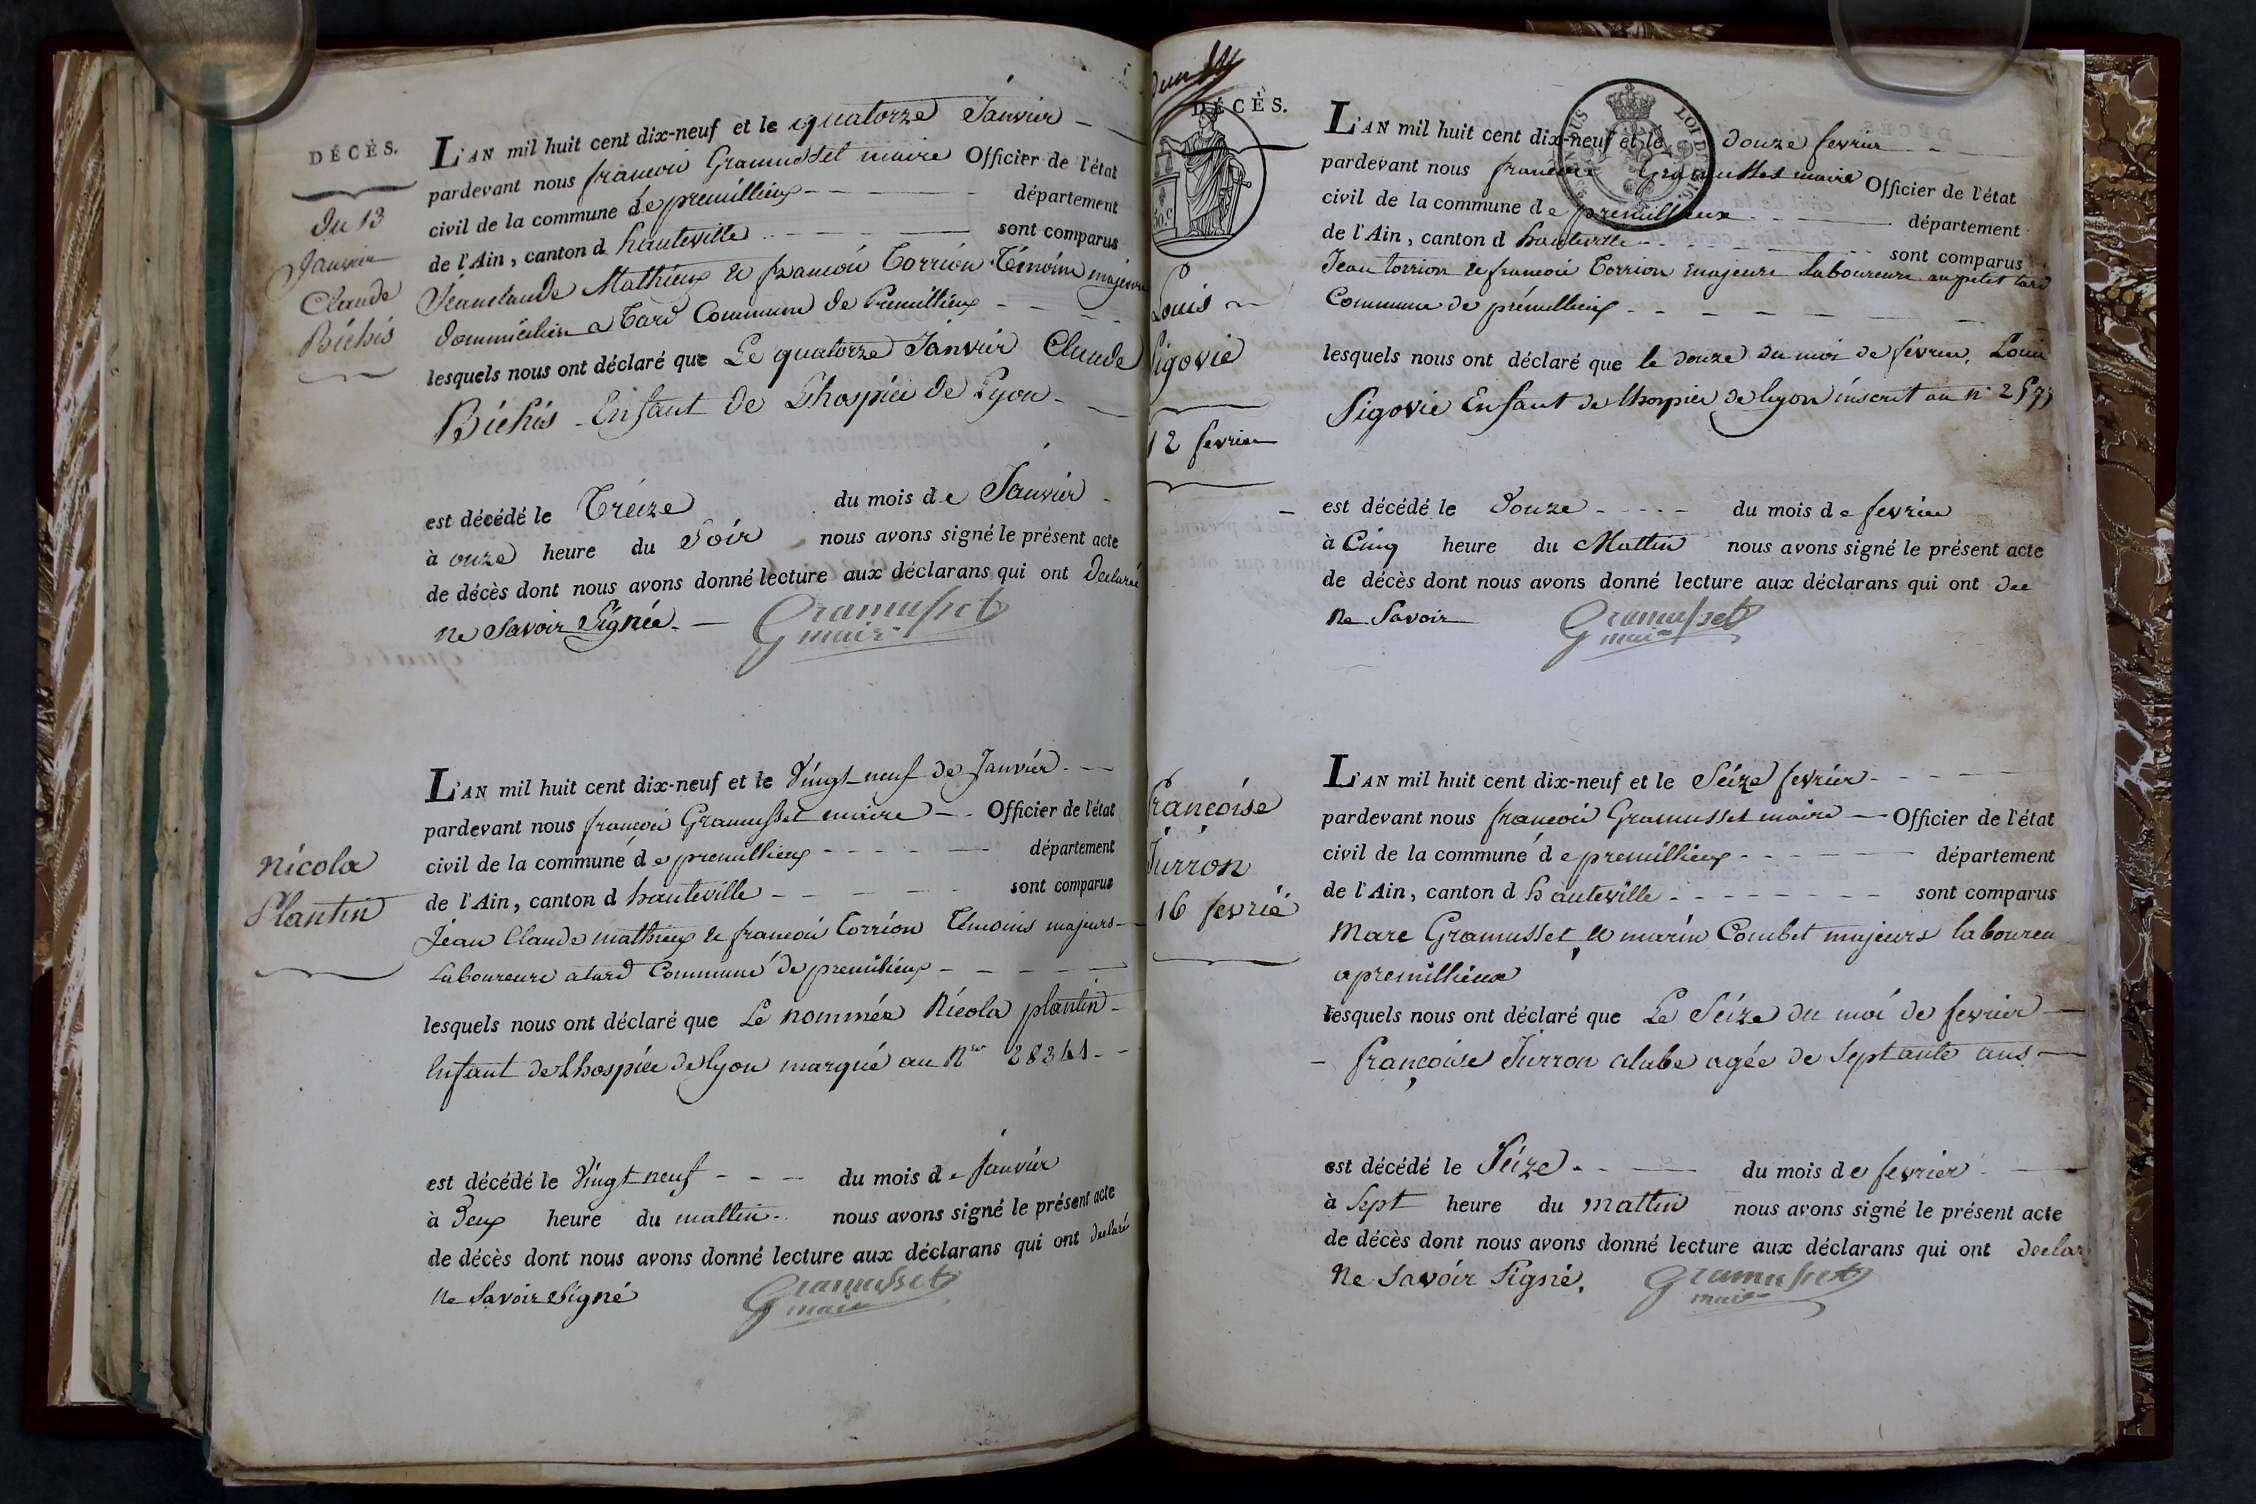 DÉCÈS.
Du 13
Janvier
Claude
Bichis
L'AN mil huit cent dix-neuf et le quatorze Janvier
pardevant nous francois Gramusset maire Officier de l'état
civil de la commune de premillieux département
de l'Ain, canton d hauteville sont comparus
Jeanclaude Mathieux et francois Torrion Témoins majeurs
domicilier a Tard Commune de Premillieux
lesquels nous ont déclaré que Le quatorze Janvier Claude
Bichis Enfant de Lhospice de Lyon
est décédé le Treize du mois de Janvier
à onze heure du Soir nous avons signé le présent acte
de décès dont nous avons donné lecture aux déclarans qui ont declaré
Ne Savoir Signée.
Gramusset
maire
Nicola
Plantin
L'AN mil huit cent dix-neuf et le Vingt neuf de Janvier
pardevant nous francois Gramusset maire Officier de l'état
civil de la commune de premillieux département
de l'Ain, canton d hauteville sont comparus
Jean Claude mathieux et francois Torrion Témoins majeurs
Laboureure a tard Commune de premilieux
lesquels nous ont déclaré que Le nommée Nicola plantin
Enfant de Lhospice de lyon marqué au N
est décédé le Vingt neuf du mois de Janvier
à Deux heure du mattin nous avons signé le présent acte
de décès dont nous avons donné lecture aux déclarans qui ont declaré
Ne Savoir Signé
Gramusset
maire
DÉCÈS.
Louis
Sigovie
12 fevrier
L'AN mil huit cent dix-neuf et le douze fevrier
pardevant nous francois Gramusset maire Officier de l'état
civil de la commune de premillieux département
de l'Ain, canton d hauteville sont comparus
Jean Torrion et francois Torrion majeure Laboureure au petit tard
Commune de prémillieux
lesquels nous ont déclaré que le douze du moi de février, Louis
Sigovie Enfant de lhospice de lyon inscrit au n°
est décédé le Douze du mois de fevrier
à Cinq heure du Mattin nous avons signé le présent acte
de décès dont nous avons donné lecture aux déclarans qui ont
Ne Savoir
Gramusset
maire
françoise
Jurron
16 fevrié
L'AN mil huit cent dix-neuf et le Séize fevrier
pardevant nous francois Gramusset maire Officier de l'état
civil de la commune de premillieux département
de l'Ain, canton d hauteville sont comparus
Marc Gramusset et marin Combet majeurs laboureu
a premillieux
lesquels nous ont déclaré que Le Séize du moi de fevrier
françoise Jurron alube agée de Septante ans
est décédé le Séize du mois de fevrier
à Sept heure du mattin nous avons signé le présent acte
de décès dont nous avons donné lecture aux déclarans qui ont declar
Ne Savoir Signé,
Gramusset
maire